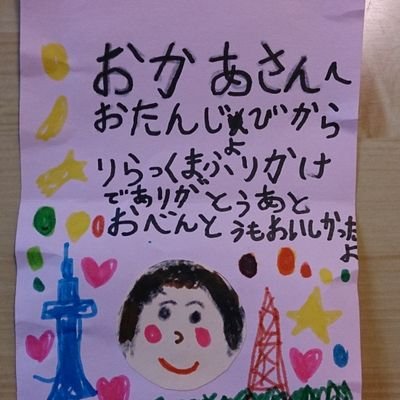 おかあさんへ
おたんじょびから
りらっくまふりかけ
でありがとうあと
おべんとうもおいしかったよ